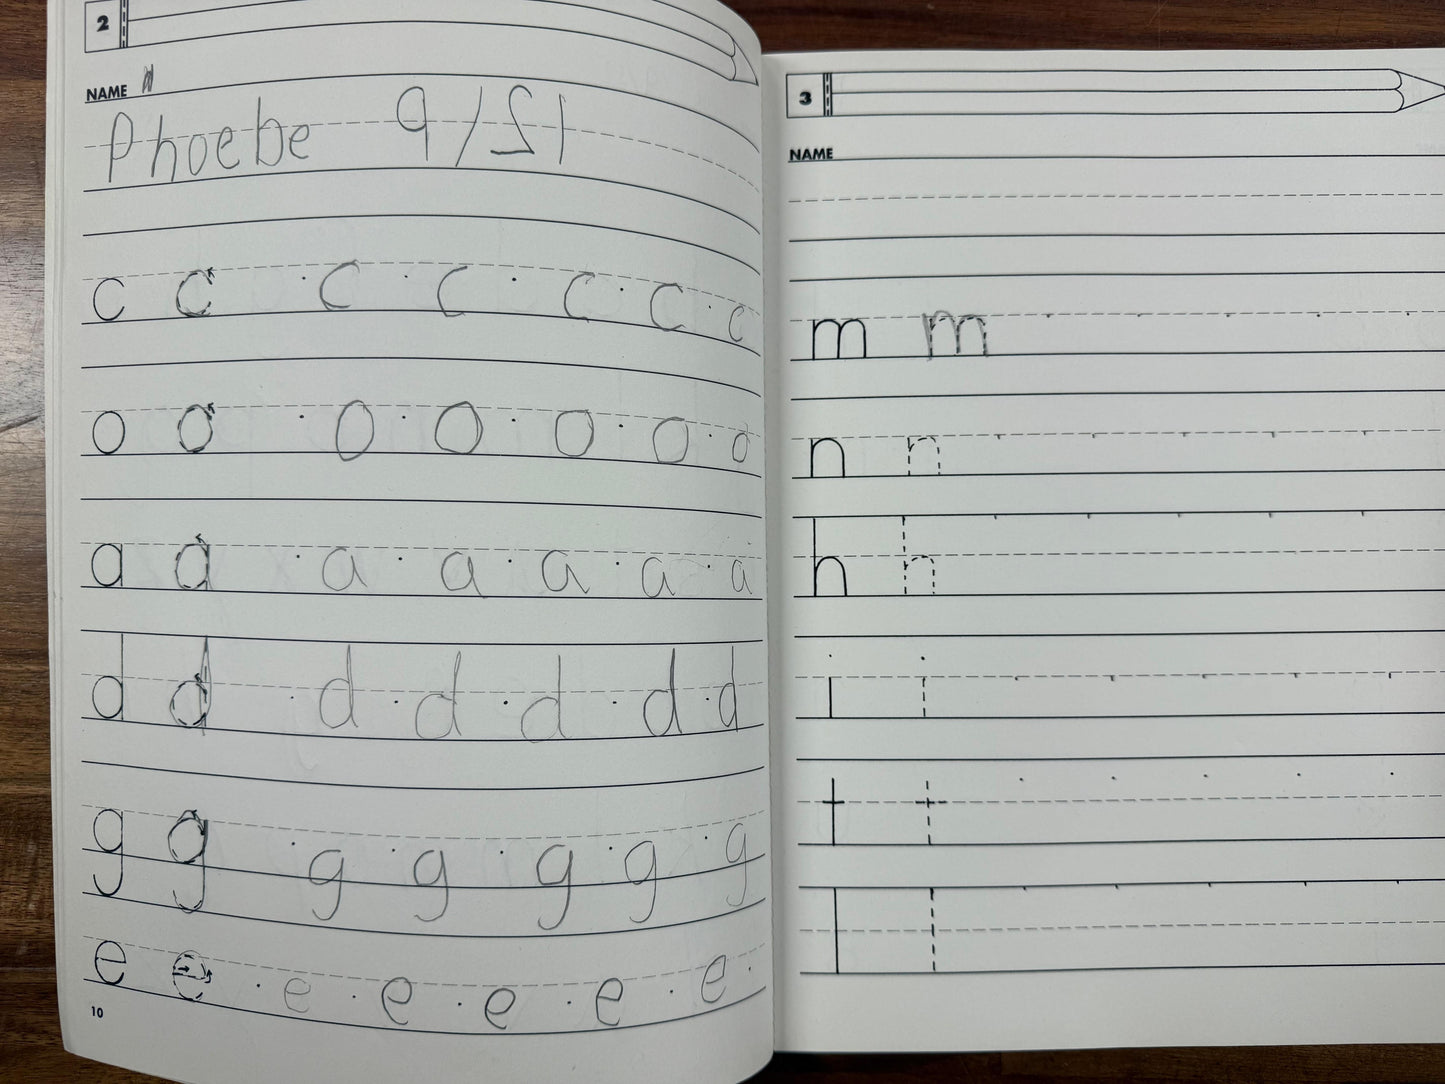 2
NAME
Phoebe 9/21
c c c c c c c
o o o o o o o
a a a a a a a
d d d d d d d
g g g g g g g
e e e e e e e
10
3
NAME
m m
n n
h h
i i
t t
l l